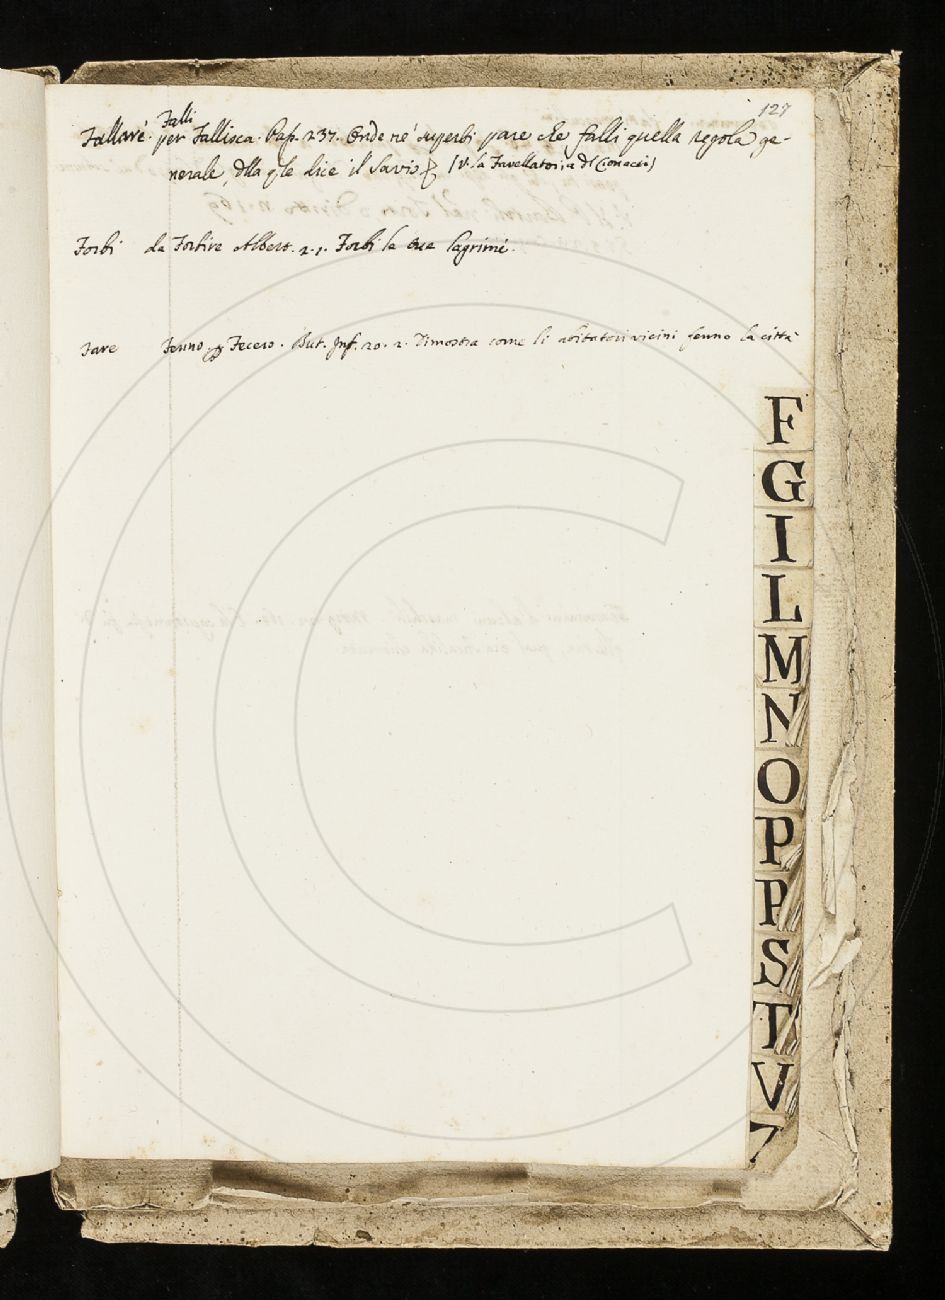 127
Falli
Fallare. per Fallisca. Pass. 237. Onde ne' superbi pare che falli quella regola ge-
nerale, dlla qle dice il Savio (V. la Favellatoria dl Cionacci)
Forbi da Forbire Albert. 2.1. Forbi le tue lagrime.
Fare Fenno, Fecero. But. Inf. 20. 2. Dimostra come li abitatori vicini fenno la città
F
G
I
L
M
N
O
P
P
S
T
V
Z